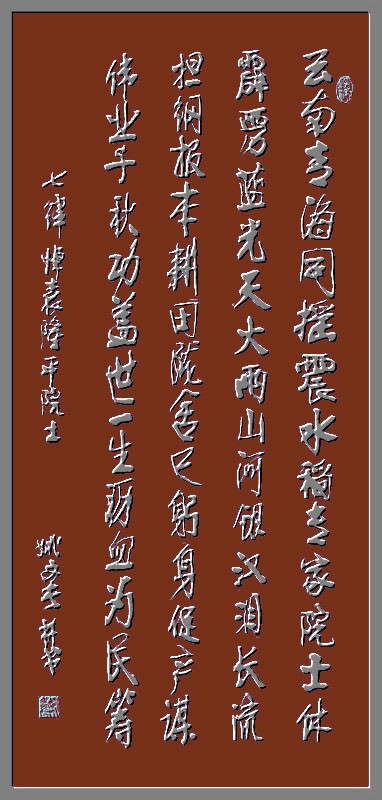 云南青海同摇震水稻专家院士休
霹雳蓝光天火雨山河银汉泪长流
担纲报本耕田陇舍己躬身促产谋
伟业千秋功盖世一生血为民筹
七律悼袁隆平院士
并书